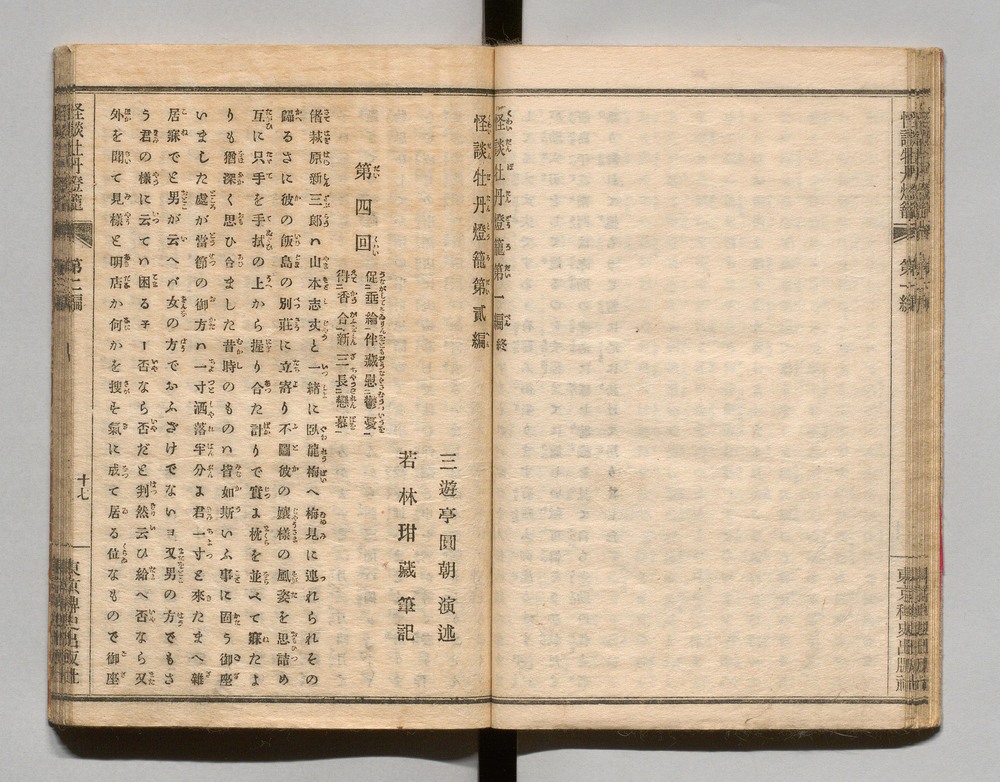 怪談牡丹燈籠第一編終
怪談牡丹燈籠第貳編
三遊亭圓朝演述
若林玵藏筆記
第四回
促垂論伴藏慰鬱憂
得香合新三長戀慕
偖萩原新三郎ハ山本志丈と一緒に臥龍梅へ梅見に連れられその
歸るさに彼の飯島の別莊に立寄り不圖彼の孃樣の風姿を思詰め
互に只手を手拭の上から握り合た計りで實よ枕を並べて寐たよ
りも猶深く思ひ合ました昔時のものハ皆如斯いふ事に固う御座
いました處が當節の御方ハ一寸洒落半分よ君一寸と來たまへ雜
居寐でと男が云へバ女の方でおふざけでないヨ又男の方でもさ
う君の樣に云てハ困るチー否なら否だと判然云ひ給へ否なら又
外を聞て見樣と明店か何かを捜を氣に成て居る位なもので御座
十七